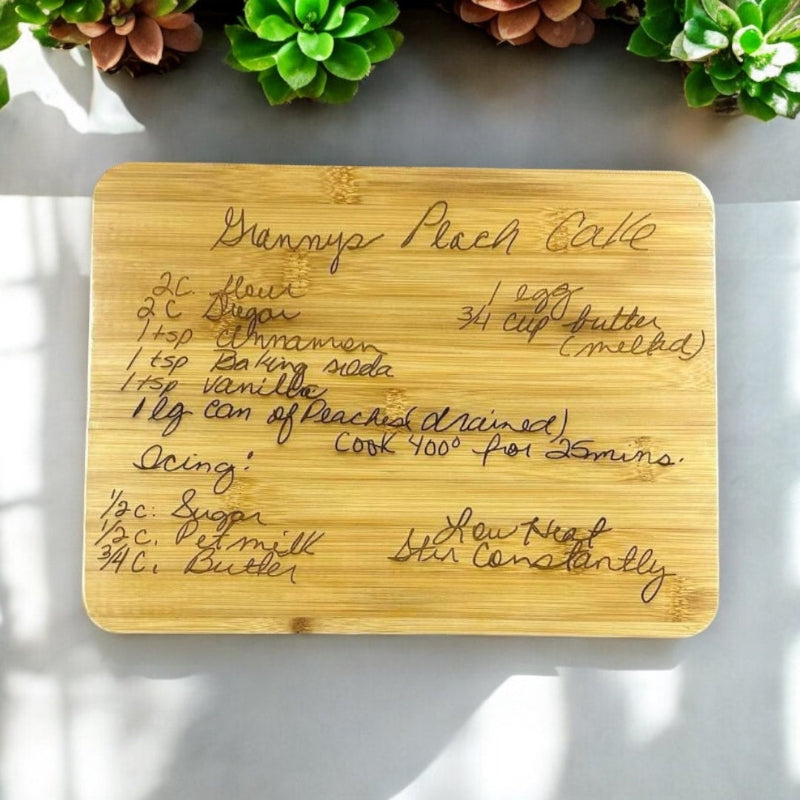 Grannys Peach Cake
2c. flour
2c Sugar
1 tsp cinnamon
1 tsp Baking soda
1 tsp vanilla
1 egg
3/4 cup butter
(melted)
1 lg can of Peaches (drained)
Cook 400° for 25mins.
Icing:
1/2c. Sugar
1/2c. Petmilk
3/4c. Butter
Low Heat
Stir Constantly